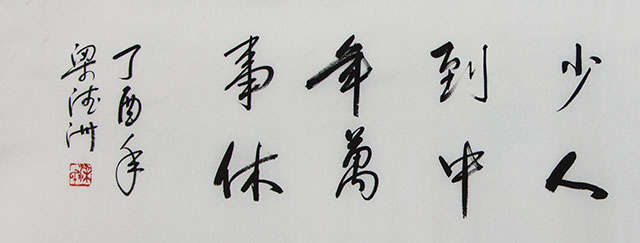 少人
到中
年萬
事休
丁酉年
梁德洲